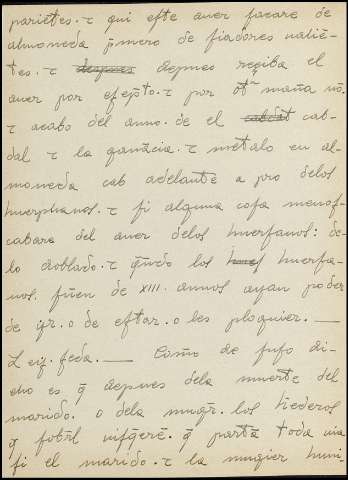 parientes. τ qui este auer sacare de
almoneda p̄mero de fiadores ualiē-
tes. τ depues reçiba el
auer por escp̄to. τ por ot̄ maña nō.
τ acabo del anno. de el cab-
dal τ la ganãcia. τ metalo en al-
moneda cab adelante a pro delos
huerphanos. τ si alguna cosa menos-
cabare del auer delos huerfanos: de-
lo doblado. τ q̄ndo los huerfa-
nos. fũen de XIII. annos ayan poder
de yr. o de estar. o les ploguier. —
L ey. seda. — Como de suso di-
cho es q̄ depues dela muerte del
marido. o dela mug̃r. los h̃ederos
q̄ sob̃l uisq̃erẽ. q̄ partã toda uia
si el marido. τ la mugier huui-